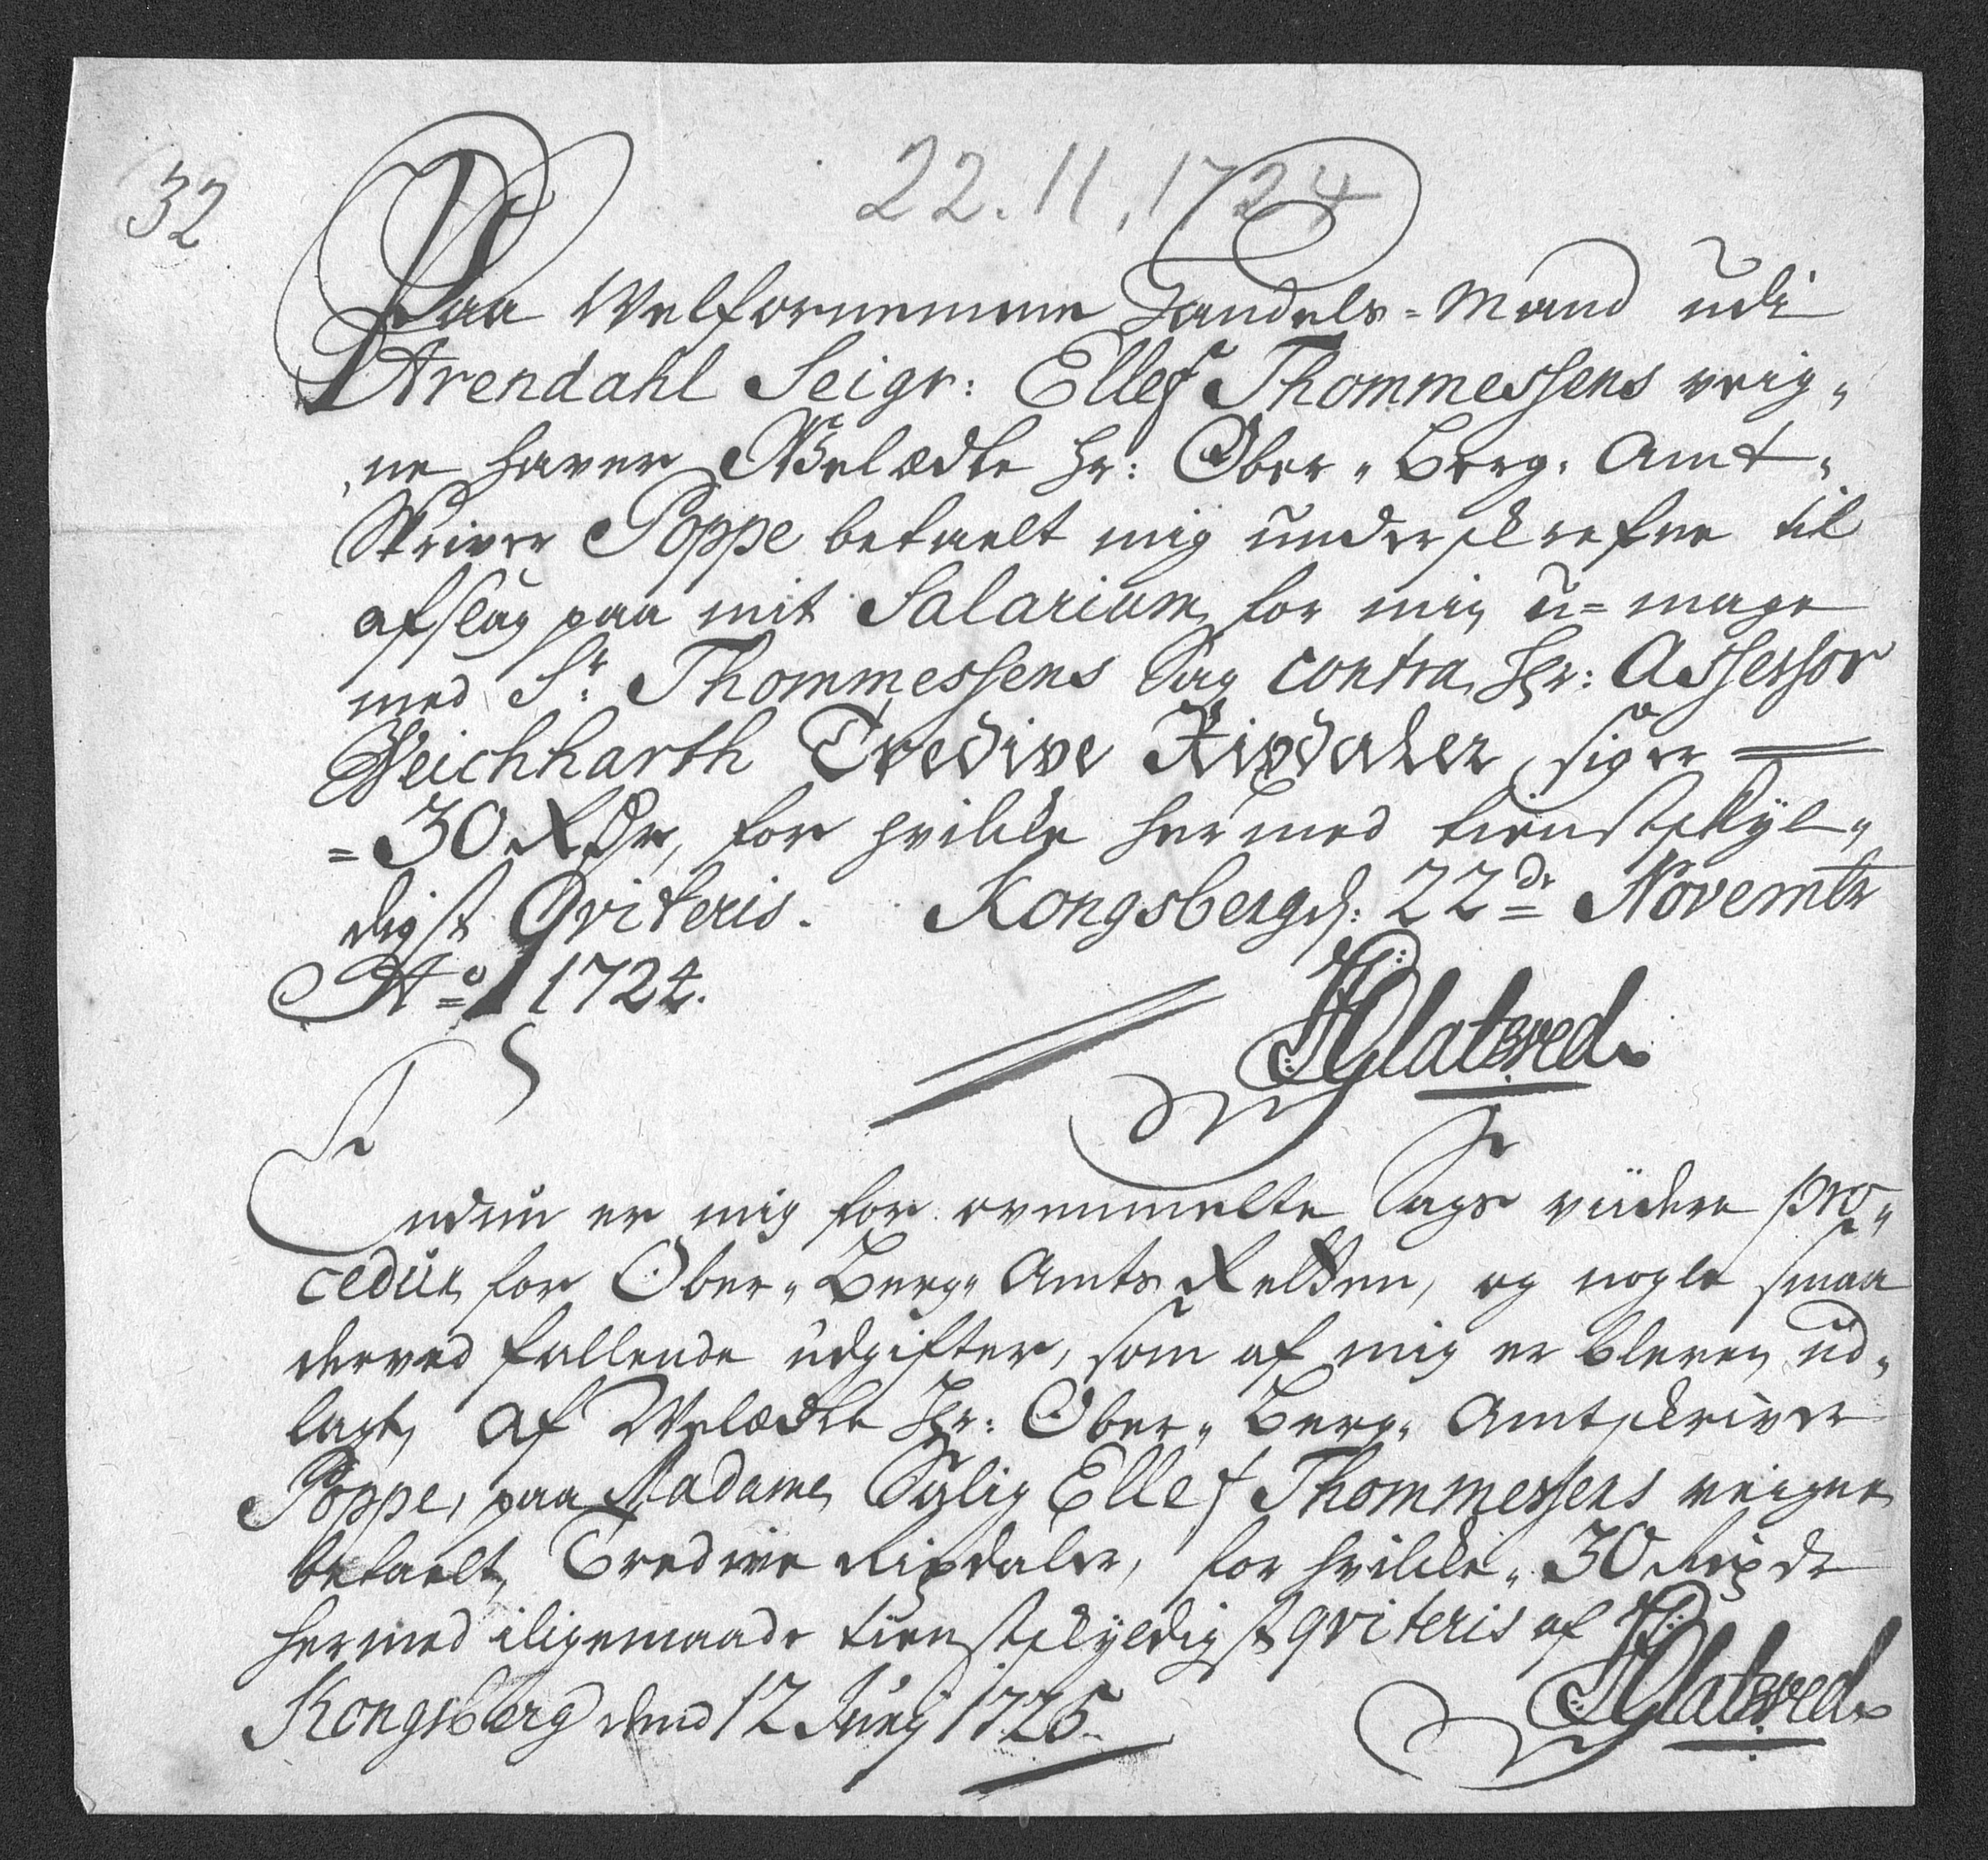 32
22.11.1724
Paa Welfornemme Handels=Mand udi
Arendahl Seigr: Ellef Thommessens veig„
„ne haver Welædle hr: Ober„Berg„Amt„
Skriver Poppe betaelt mig underskrefne til
afslag paa mit Salarium for min u=mage
med Sr. Thommessens Sag contra Hr: Assessor
Weichharth Tredive Rixdaler, siger
=30 Rdr, for hvilke hermed tienstskyl„
digst Qviteris. Kongsberg d: 22de Novembr
Ao 1724.
Glatved
Endnu er mig for ovenmelte Sags viidere pro„
cedur for Ober„Berg„Amts Retten, og nogle smaa
derved fallende udgifter, som af mig er bleven ud„
lagt, af Welædle Hr: Ober„Berg„Amtskriver
Poppe, paa Madame Salig Ellef Thommessens veigne
betaelt, Tredive Rixdaler, for hvilke„30 Rixdr
hermed iligemaade tienstskyldigst qviteris af
Kongsberg dend 12 Junij 1725.
Glatved